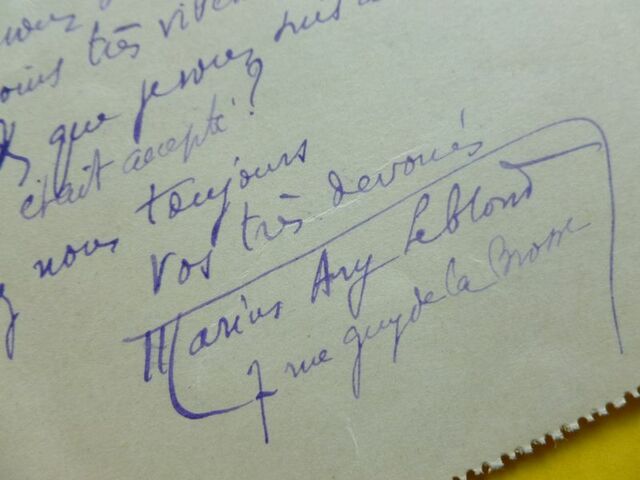 très vive
que je vous suis
était accepté?
nous toujours
vos très dévoués
Marius Ary Leblond
7 rue guy de la Brosse